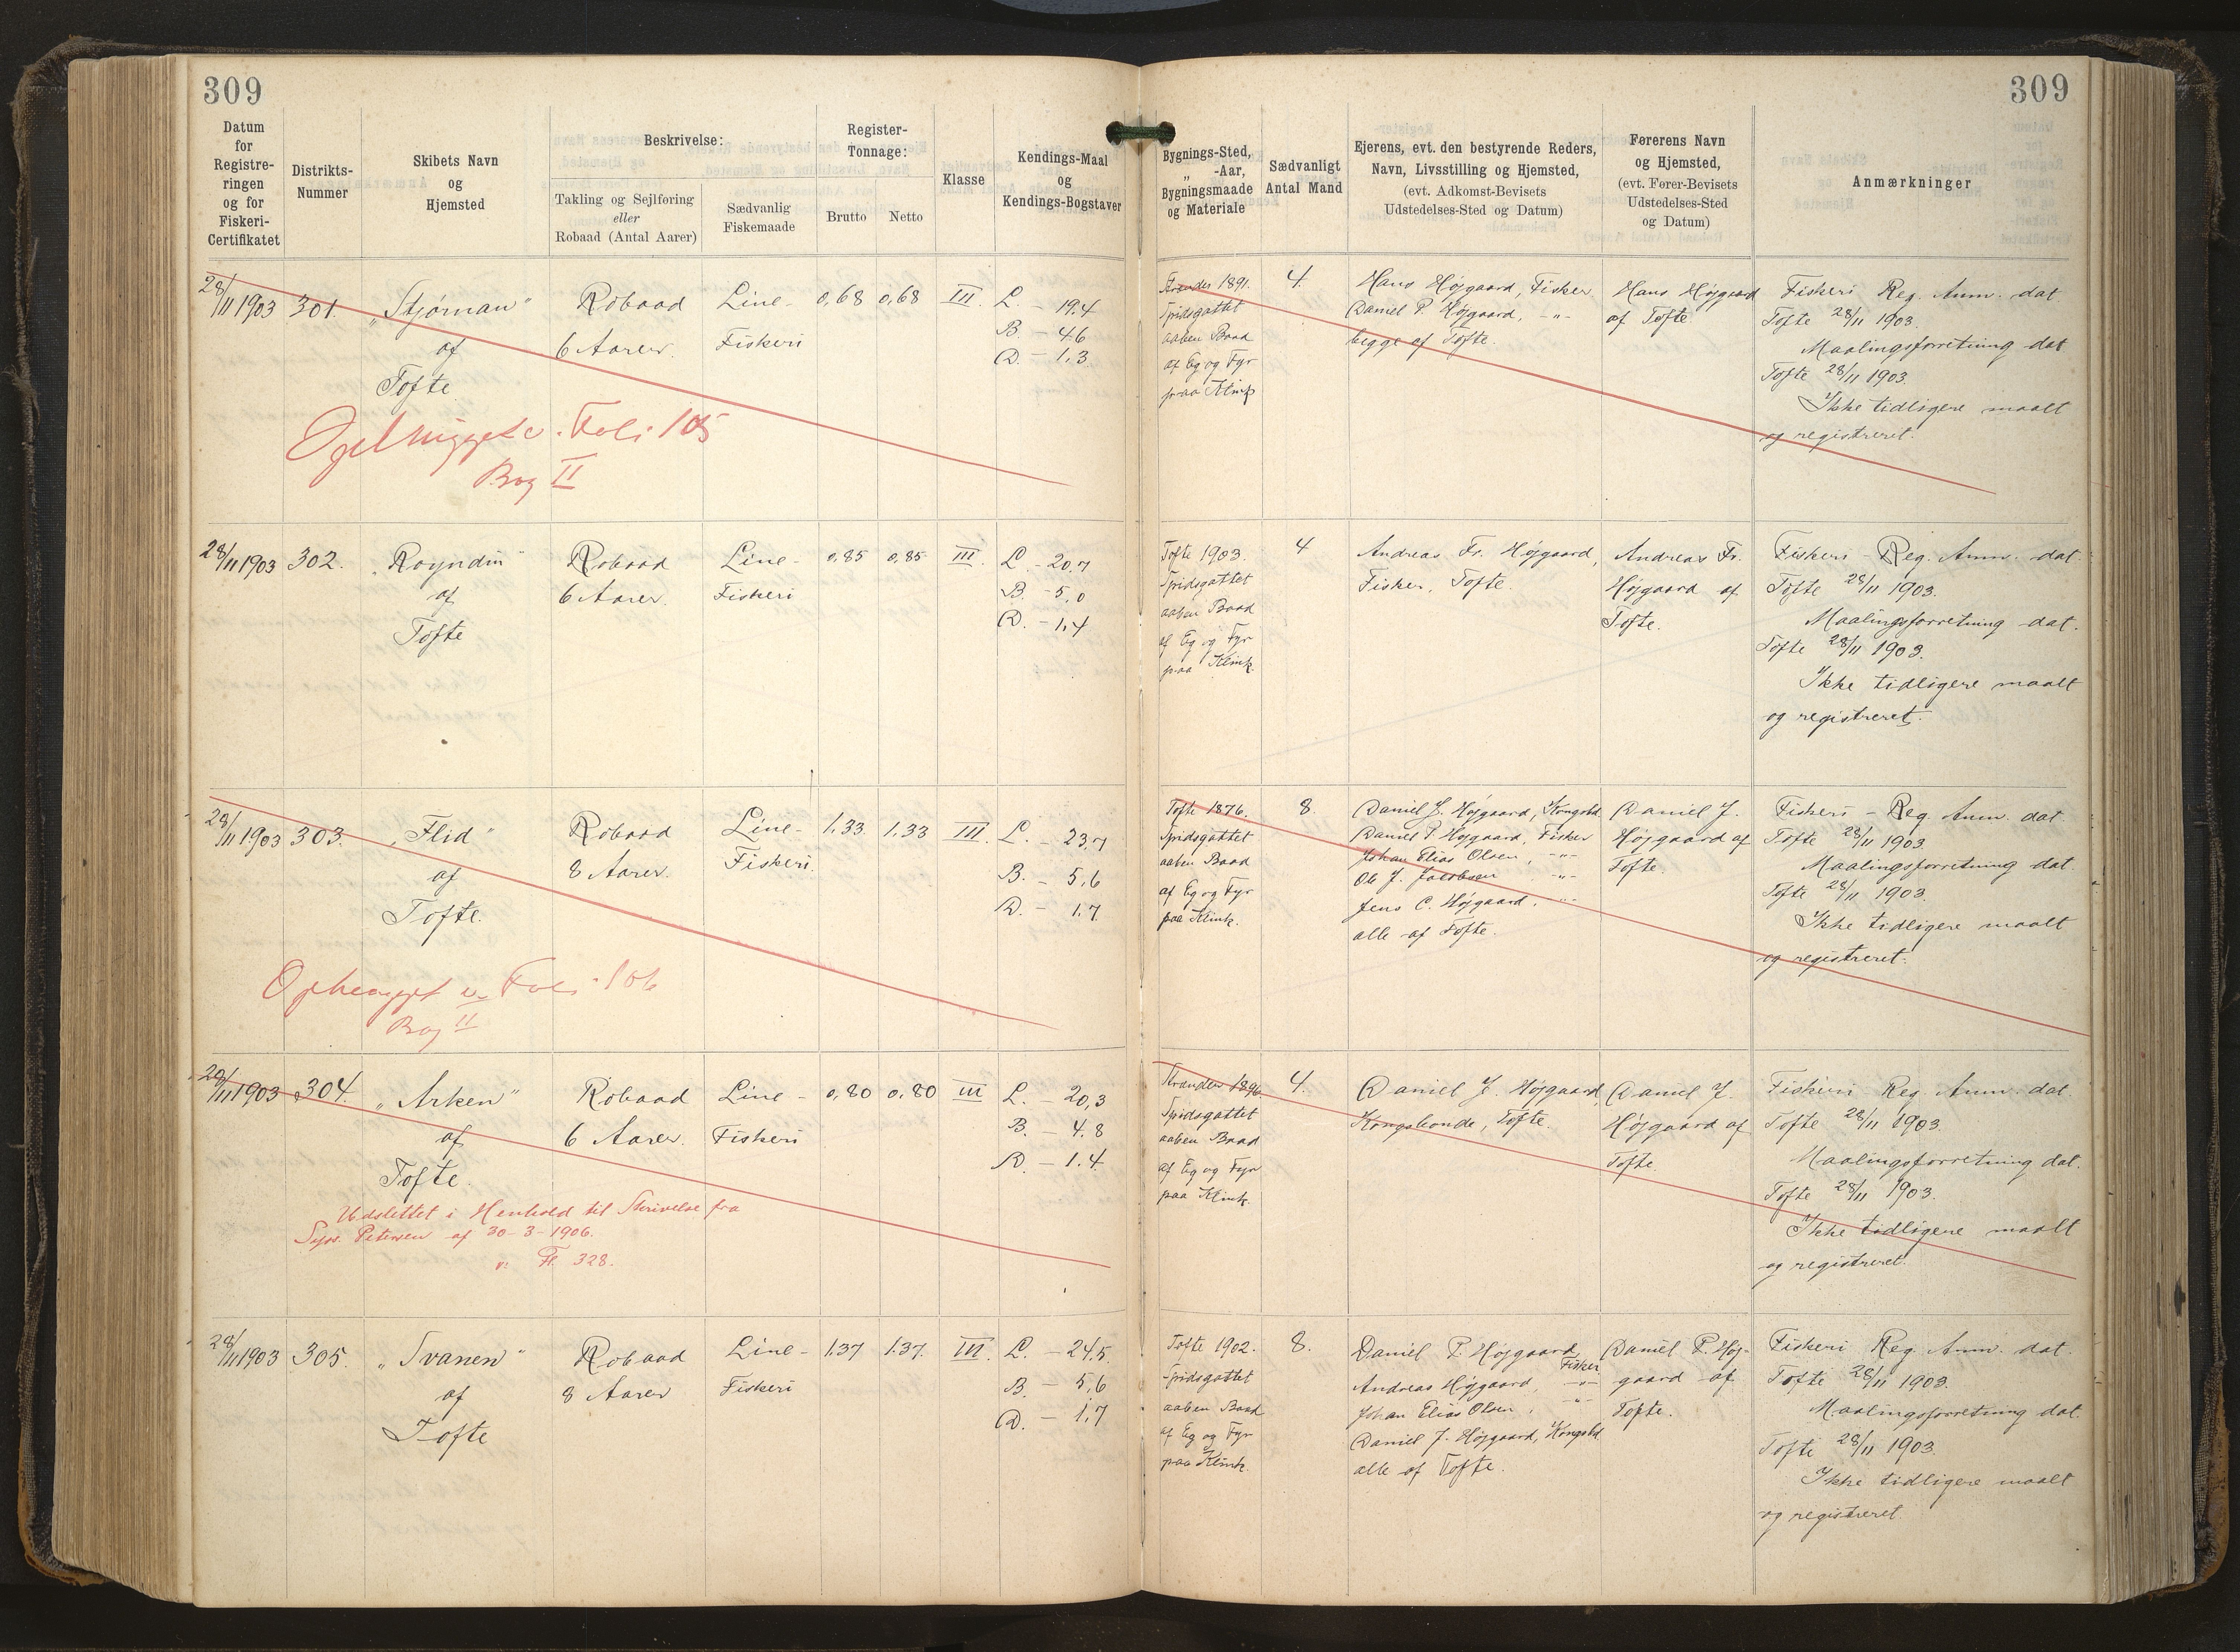 309
309
Datum
for
Registre-
ringen
og for
Fiskeri-
Certifikatet
Distrikts-
Nummer
Skibets Navn
og
Hjemsted
Beskrivelse:
Takling og Sejlføring
eller
Robaad (Antal Aarer)
Sædvanlig
Fiskemaade
Register-
Tonnage:
Brutto
Netto
Klasse
Kendings-Maal
og
Kendings-Bogstaver
Bygnings-Sted,
„ -Aar,
Bygningsmaade
og Materiale
Sædvanligt
Antal Mand
Ejerens, evt. den bestyrende Reders,
Navn, Livsstilling og Hjemsted,
(evt. Adkomst-Bevisets
Udstedelses-Sted og Datum)
Førerens Navn
og Hjemsted,
(evt. Fører-Bevisets
Udstedelses-Sted
og Datum)
Anmærkninger
28/11 1903
301.
„Stjørnan“
af
Tofte
Robaad
6 Aarer.
Line-
Fiskeri
0,68
0,68
III.
L. - 19.4
B. - 4.6
D. - 1.3
Strander 1891.
Spidsgattet
aaben Baad
af Eg og Fyr
paa Klink
4.
Hans Højgaard, Fisker
Daniel P. Højgaard, -„-
begge af Tofte.
Hans Højgaard
af Tofte.
Fiskeri Reg. Anm. dat
Tofte 28/11 1903.
Maalingsforretning dat
Tofte 28/11 1903.
Ikke tidligere maalt
og registreret.
Foli 105
Bog II
28/11 1903
302.
„Royndin“
af
Tofte
Robaad
6 Aarer.
Line-
Fiskeri
0,85
0,85
III.
L. - 20,7
B. - 5,0
D. - 1,4
Tofte 1903.
Spidsgattet
aaben Baad
af Eg og Fyr
paa Klink.
4
Andreas Fr. Højgaard,
Fisker, Tofte.
Andreas Fr.
Højgaard af
Tofte.
Fiskeri - Reg. Anm. dat.
Tofte 28/11 1903.
Maalingsforretning dat.
Tofte 28/11 1903.
Ikke tidligere maalt
og registreret.
28/11 1903
303.
„Flid“
af
Tofte.
Robaad
8 Aarer.
Line-
Fiskeri.
1,33.
1,33
III.
L. - 23,7
B. - 5,6
D. - 1,7
Tofte 1876.
Spidsgattet
aaben Baad
af Eg og Fyr
paa Klink.
8
Daniel J. Højgaard, Kongsbd.
Daniel P. Højgaard, Fisker
Johan Elias Olsen, -„-
Ole J. Jacobsen -„-
Jens C. Højgaard, -„-
alle af Tofte.
Daniel J.
Højgaard af
Tofte.
Fiskeri - Reg. Anm. dat
Tofte 28/11 1903.
Maalingsforretning dat.
Tofte 28/11 1903.
Ikke tidligere maalt
og registreret.
Foli 106
Bog II
28/11 1903
304.
„Arken“
af
Tofte.
Robaad
6 Aarer.
Line -
Fiskeri
0,80
0,80
III
L. - 20,3
B. - 4.8
D. - 1.4
Strander 1896.
Spidsgattet
aaben Baad
af Eg og Fyr
paa Klink.
4.
Daniel J. Højgaard,
Kongsbonde, Tofte.
Daniel J.
Højgaard af
Tofte.
Fiskeri Reg. Anm. dat.
Tofte 28/11 1903.
Maalingsforretning dat.
Tofte 28/11 1903.
Ikke tidligere maalt
og registreret.
Udslettet i Henhold til Skrivelse fra
Syss. Petersen af 30-3-1906.
v. Fl. 328.
28/11 1903
305.
„Svanen“
af
Tofte
Robaad
8 Aarer
Line -
Fiskeri
1.37
1.37.
III.
L. - 24.5.
B. - 5,6
D. - 1,7
Tofte 1902.
Spidsgattet
aaben Baad
af Eg og Fyr
paa Klink.
8.
Daniel P. Højgaard, Fisker
Andreas Højgaard, -„-
Johan Elias Olsen, -„-
Daniel J. Højgaard, Kongsbd.
alle af Tofte.
Daniel P. Høj-
gaard af
Tofte.
Fiskeri Reg. Anm. dat.
Tofte 28/11 1903.
Maalingsforretning dat.
Tofte 28/11 1903.
Ikke tidligere maalt
og registreret.